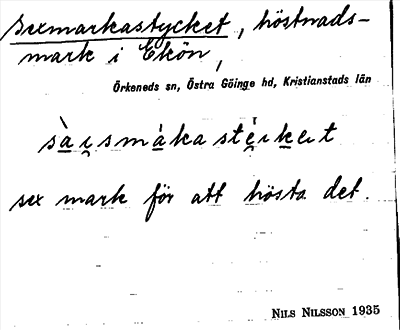 sexmarkastycket, höstnads-
mark i Ekön,
Örkeneds sn, Östra Göinge hd, Kristianstads län
sex mark för att hösta det.
NILS NILSSON 1935